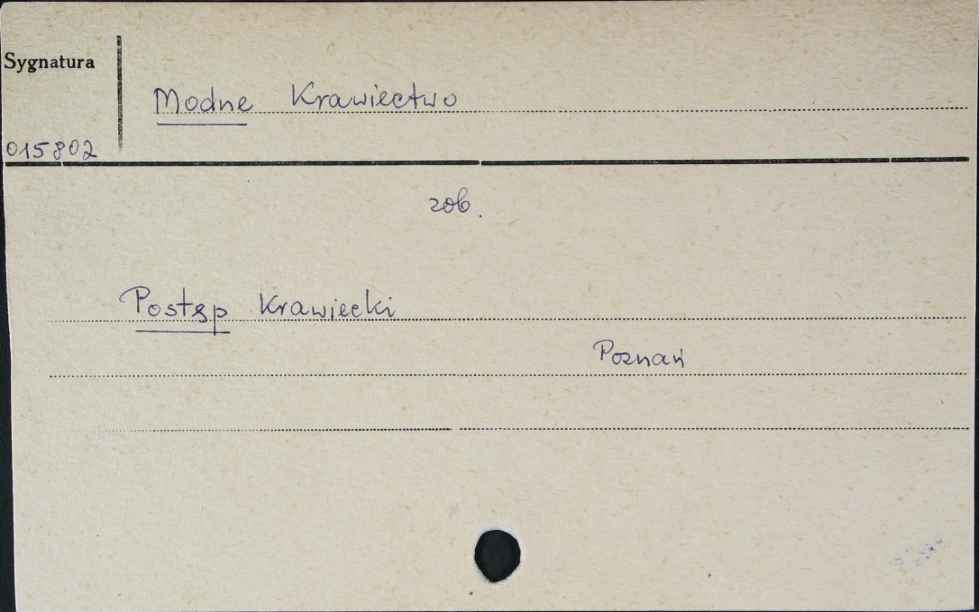 Sygnatura
Modne Krawiectwo
015802
zob.
Postęp Krawiecki
Poznań